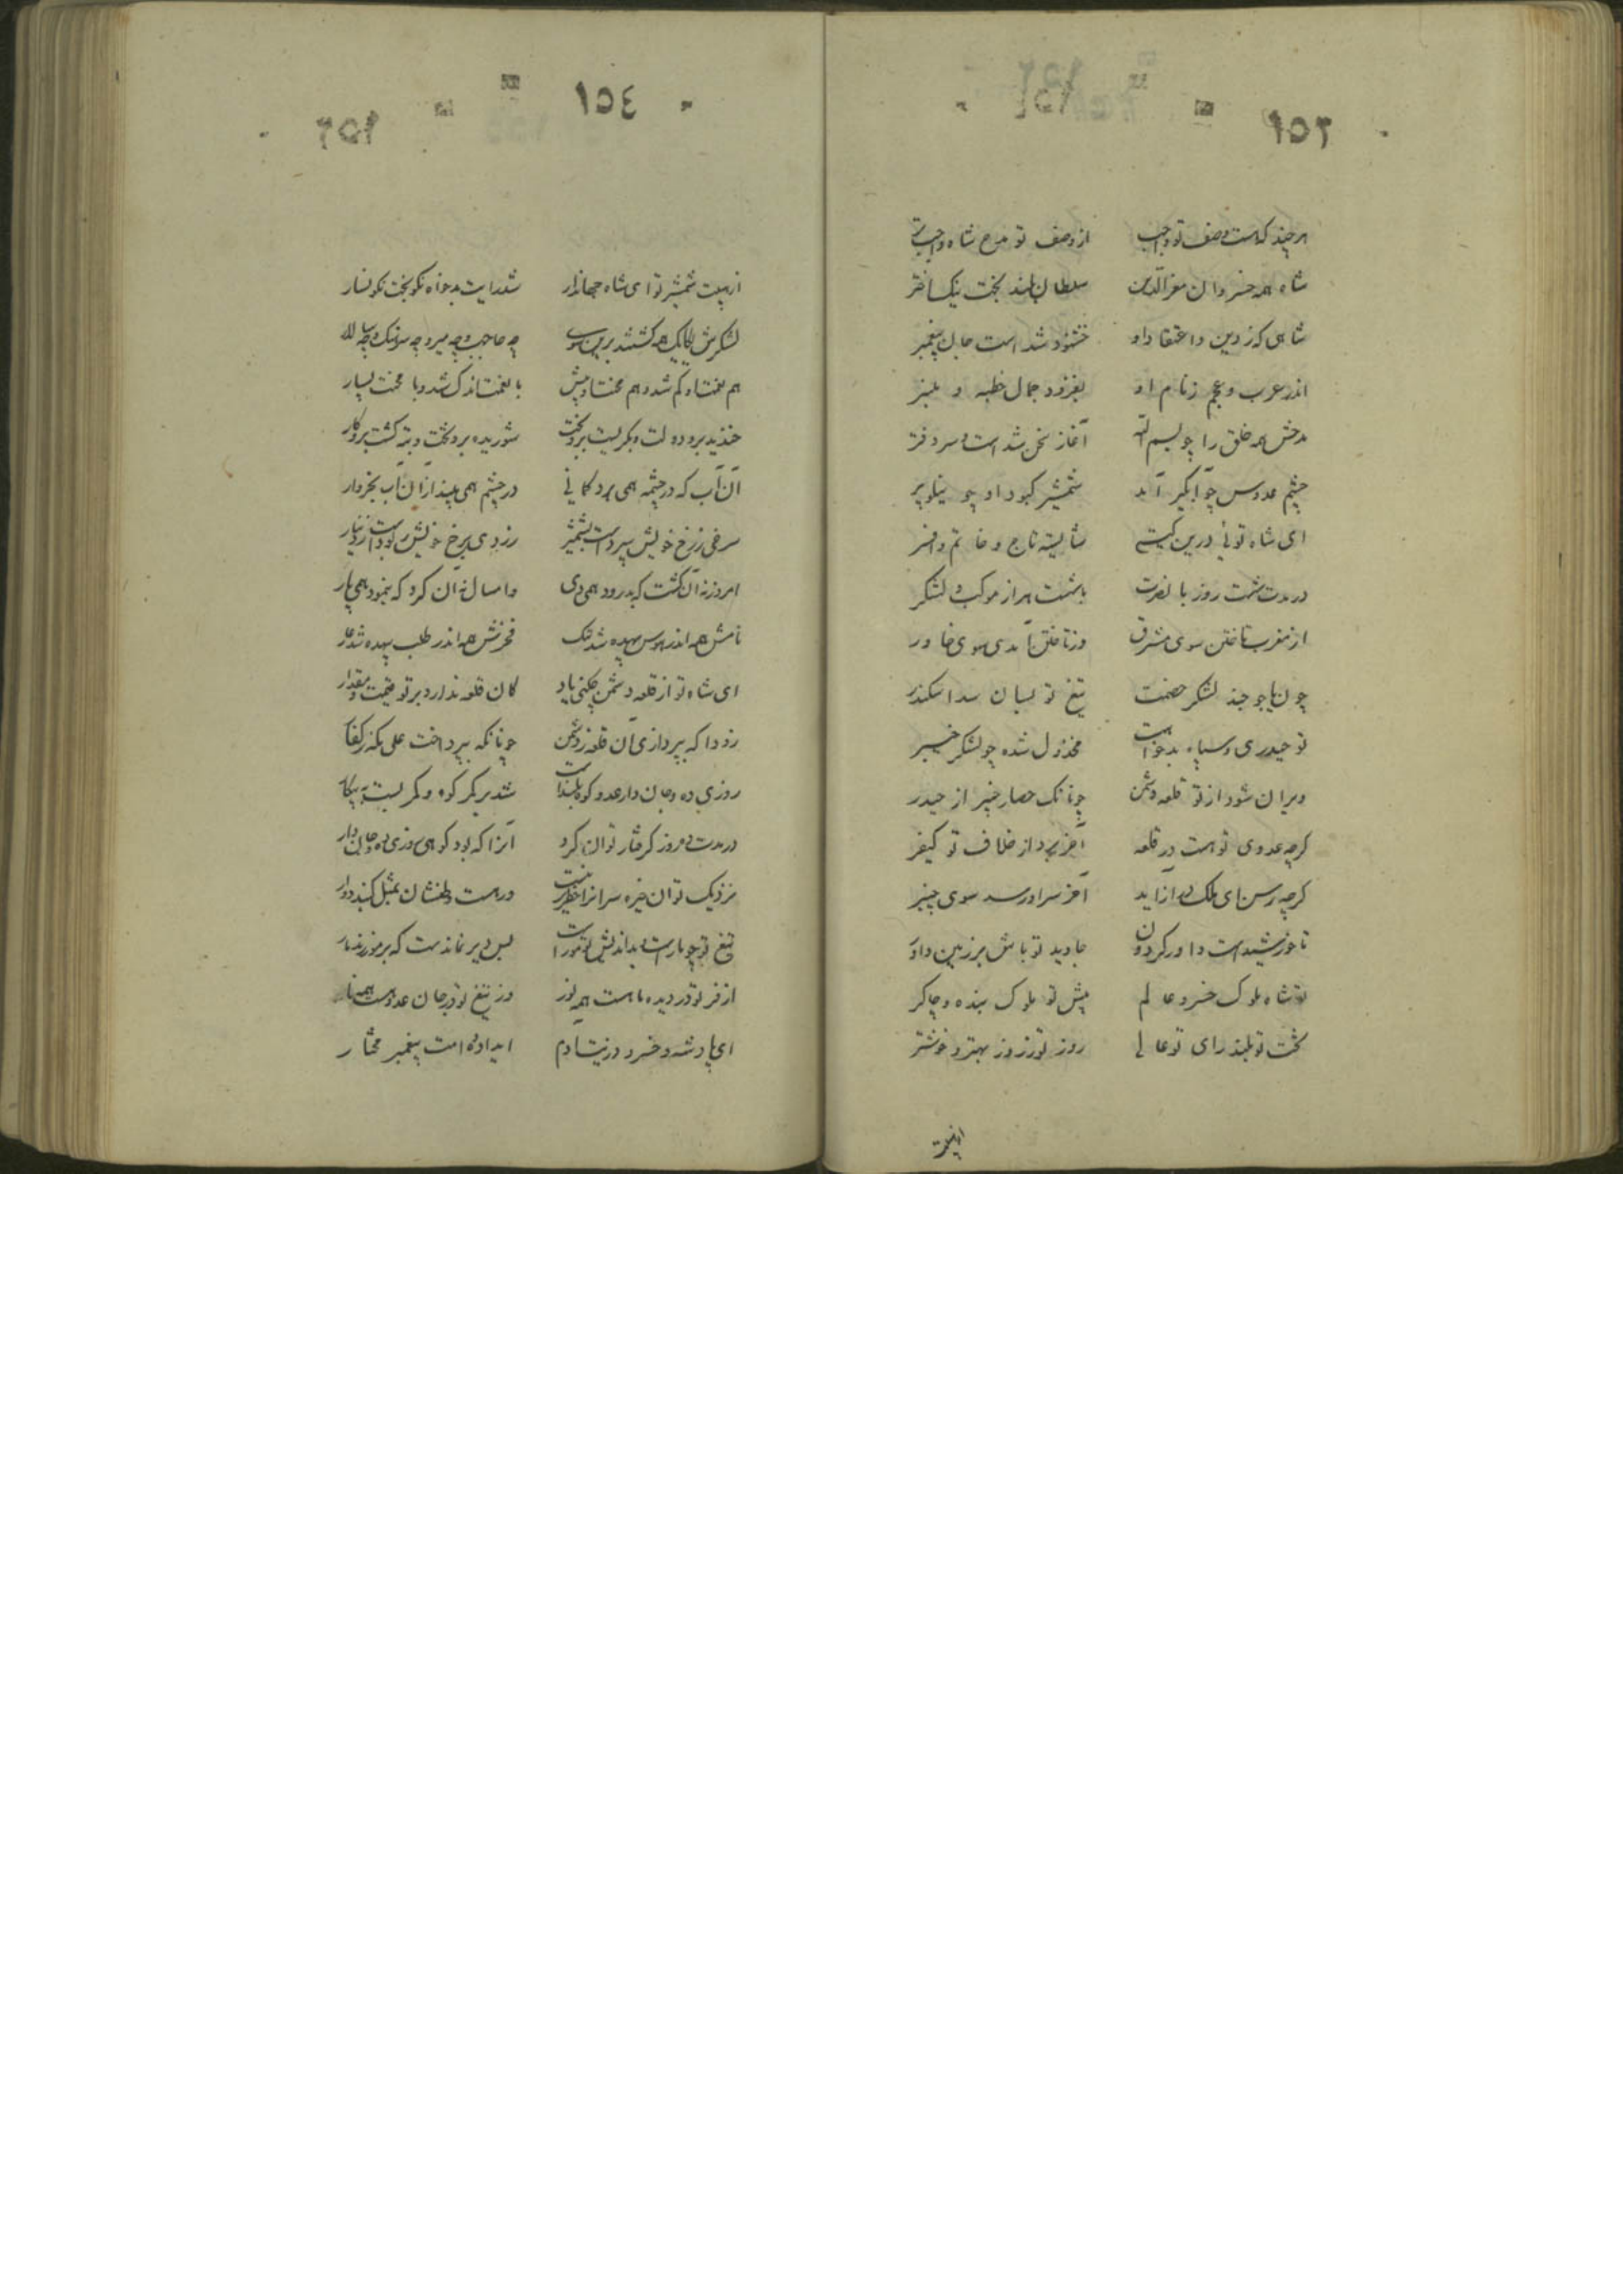 ١٥٣
هر چند که هست وصف تو واجب از وصف تو مدح شاه واجبتر
شاه همه خسروان معزالدین سلطان بلند بخت نیک اختر
شاهی که ز دین و اعتقاد او خشنود شد است جان پیغمبر
اندر عرب و عجم ز نام او بفزود جمال خطبه و منبر
مدحش همه خلق را چو بسم الله آغاز سخن شد است و سر دفتر
چشم عدوس چو آبگیر آمد شمشیر کبود او چو نیلوپر
ای شاه توئی درین گیتی شایسته تاج و خاتم و افسر
در مدت شصت روز با نصرت با شصت هزار موکب و لشکر
از مغرب تاختن سوی مشرق وز تاختن آمدی سوی خاور
چون یاجوجند لشکر خصمت تیغ تو بسان سد اسکندر
تو حیدری و سپاه بدخواهت مخذول شده چو لشکر خیبر
ویران شود از تو قلعه دشمن چونانک حصار خیبر از حیدر
گرچه عدوی تو هست در قلعه آخر ببرد از خلاف تو کیفر
گرچه رسن ای ملک دراز آید آخر سر او رسد سوی چنبر
تا خورشید است داور گردون جاوید تو باش بر زمین داور
تو شاه ملوک خسرو عالم پیش تو ملوک بنده و چاکر
بخت تو بلند رای تو عالی روز تو ز روز بهتر و خوشتر
از هیبت
١٥٤
از هیبت شمشیر تو ای شاه جهاندار شد رایت بدخواه نگونبخت نگونسار
لشکرش یکایک همه کشتند برین چه حاجب و چه میر و چه سرهنگ و چه سالار
هم نعمت او کم شد و هم محنت او بیش با نعمت اندک شد و با محنت بسیار
خندید برو دولت و بگریست برو بخت شوریده برو تخت و تبه گشت برو کار
آن آب که در چشمه همی برد گمانی در چشم همی بیند از آن آب بخروار
سرخی ز رخ خویش سپرده است بشمشیر زردی برخ خویش ربوده است ز دینار
امروز نه آن گشت که بدرود همی دی و امسال نه آن کرد که بنمود همی پار
نامش همه اندر هوس بیهده شد ننگ فخرش همه اندر طلب بیهده شد عار
ای شاه تو از قلعه دشمن چکنی یاد کان قلعه ندارد بر تو قیمت و مقدار
زودا که بپردازی آن قلعه ز دشمن چونانکه بپرداخت علی مکه ز کفار
روزی ده و جان دار عدو کوه بلند است شد بر کمر کوه و کمر بست به پیکار
در مدت ده روز گرفتار توان کرد آنرا که بود کوهی روزی ده و جان دار
نزدیک تو آن خیره سرانرا خطری نیست ور هست وطنشان بمثل گنبد دوار
تیغ تو چو مار است بداندیش تو مور است بس دیر نماندست که بر مور زند مار
از فر تو در دیده ما هست همه نور وز تیغ تو در جان عدو هست همه نار
ای پادشه و خسرو در نیت آدم ای داده امت پیغمبر مختار